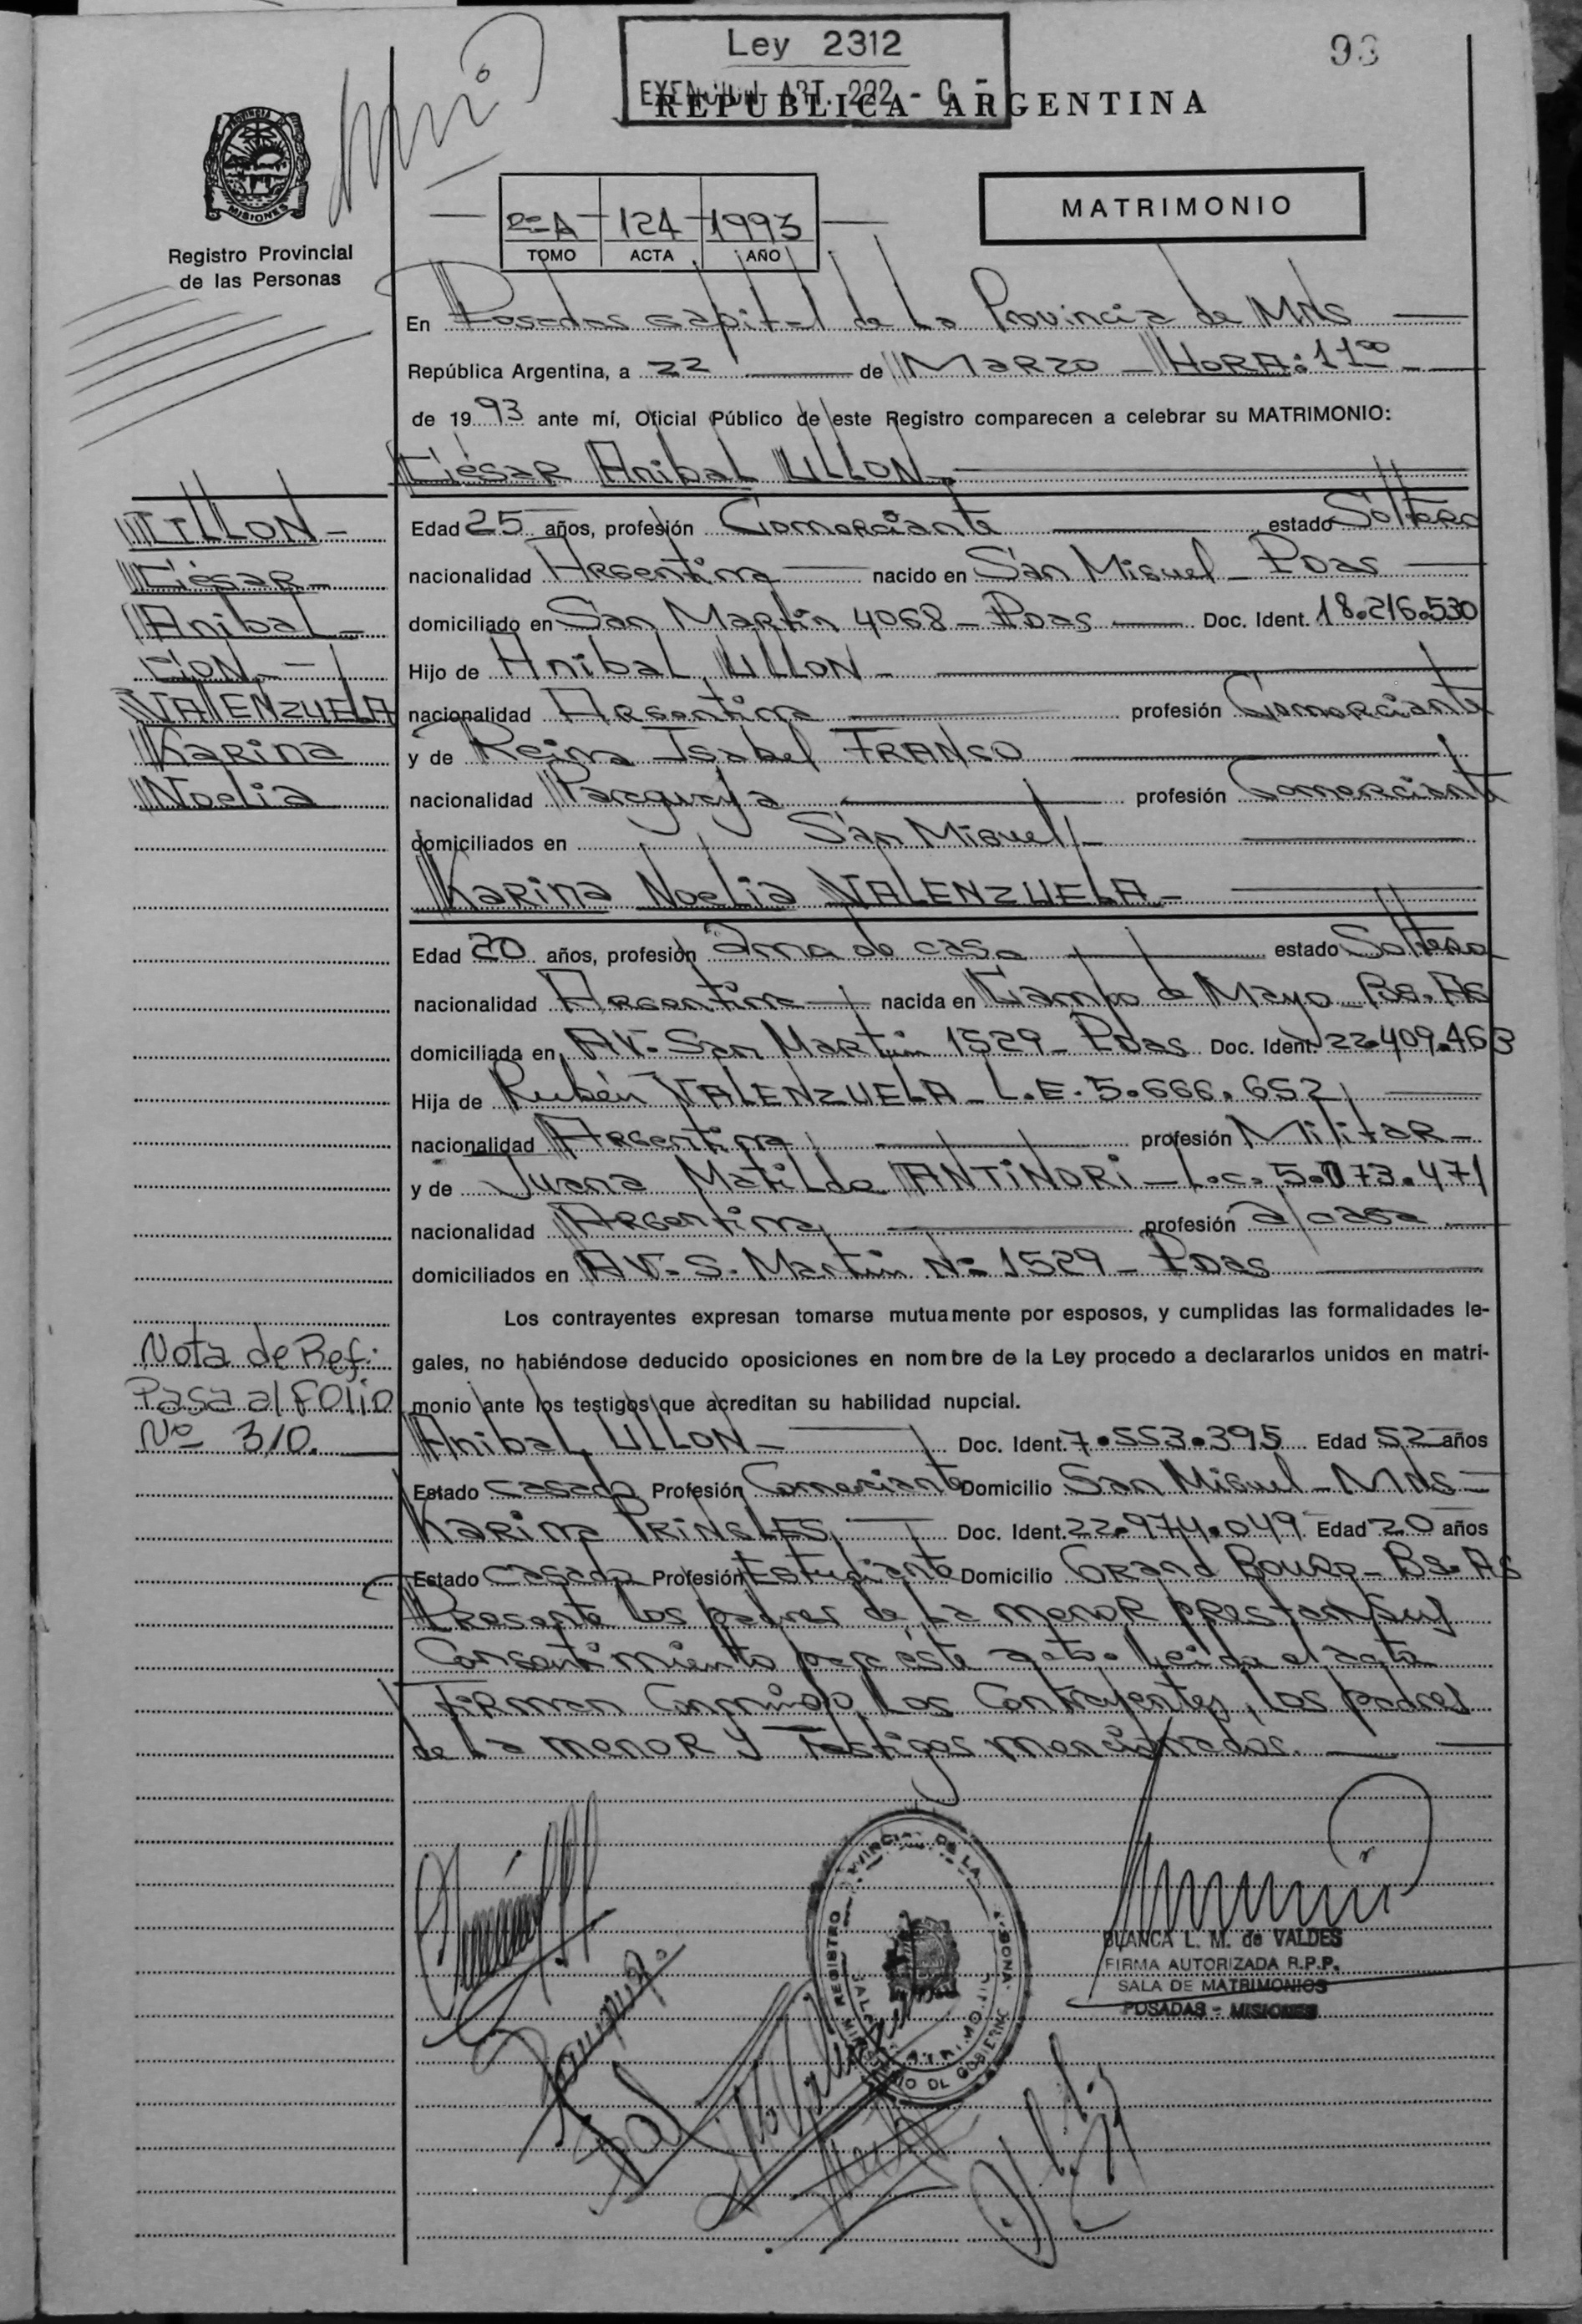 Ley 2312
EXENCION ART. 222 - C -
93
REPUBLICA ARGENTINA
PROVINCIA DE
MISIONES
Registro Provincial
de las Personas
2º A 124 1993
TOMO ACTA AÑO
MATRIMONIO
En Posadas capital de La Provincia de Mnes
República Argentina, a 22 de Marzo - HORA: 11 00
de 19 93 ante mí, Oficial Público de este Registro comparecen a celebrar su MATRIMONIO:
César Anibal LILLON
LILLON -
César -
Anibal -
CON. -
VALENZUELA
Karina
Noelia
Edad 25 años, profesión Comerciante estado Soltero
nacionalidad Argentina nacido en San Miguel - Pdas
domiciliado en San Martín 4068 - Pdas Doc. Ident. 18.216.530
Hijo de Anibal LILLON -
nacionalidad Argentina profesión Comerciante
y de Reina Isabel FRANCO
nacionalidad Paraguaya profesión Comerciante
domiciliados en San Miguel -
Karina Noelia VALENZUELA -
Edad 20 años, profesión ama de casa estado Soltera
nacionalidad Argentina nacida en Campo de Mayo - Bs. As
domiciliada en AV. San Martín 1529 - Pdas Doc. Ident. 22.409.463
Hija de Rubén VALENZUELA - L.E. 5.666.652
nacionalidad Argentina profesión Militar -
y de Juana Matilde ANTINORI - L.C. 5.173.471
nacionalidad Argentina profesión a/casa
domiciliados en AV. S. Martín Nº 1529 - Pdas
Los contrayentes expresan tomarse mutuamente por esposos, y cumplidas las formalidades le-
gales, no habiéndose deducido oposiciones en nombre de la Ley procedo a declararlos unidos en matri-
monio ante los testigos que acreditan su habilidad nupcial.
Nota de Ref:
Pasa al FOLIO
Nº 310.
Anibal LILLON - Doc. Ident. 7.553.395 Edad 52 años
Estado casado Profesión Comerciante Domicilio San Miguel - Mnes -
Karina PRINGLES Doc. Ident. 22.974.049 Edad 20 años
Estado casada Profesión Estudiante Domicilio Grand Bourg - Bs. As
Presente los padres de la menor prestan su
Consentimiento para éste acto. Leida el acta
Firman Conmigo, los Contrayentes, los padres
de la menor y Testigos mencionados.
REGISTRO PROVINCIAL DE LAS PERSONAS
MINISTERIO DE GOBIERNO
BLANCA L. M. de VALDES
FIRMA AUTORIZADA R.P.P.
SALA DE MATRIMONIOS
POSADAS - MISIONES